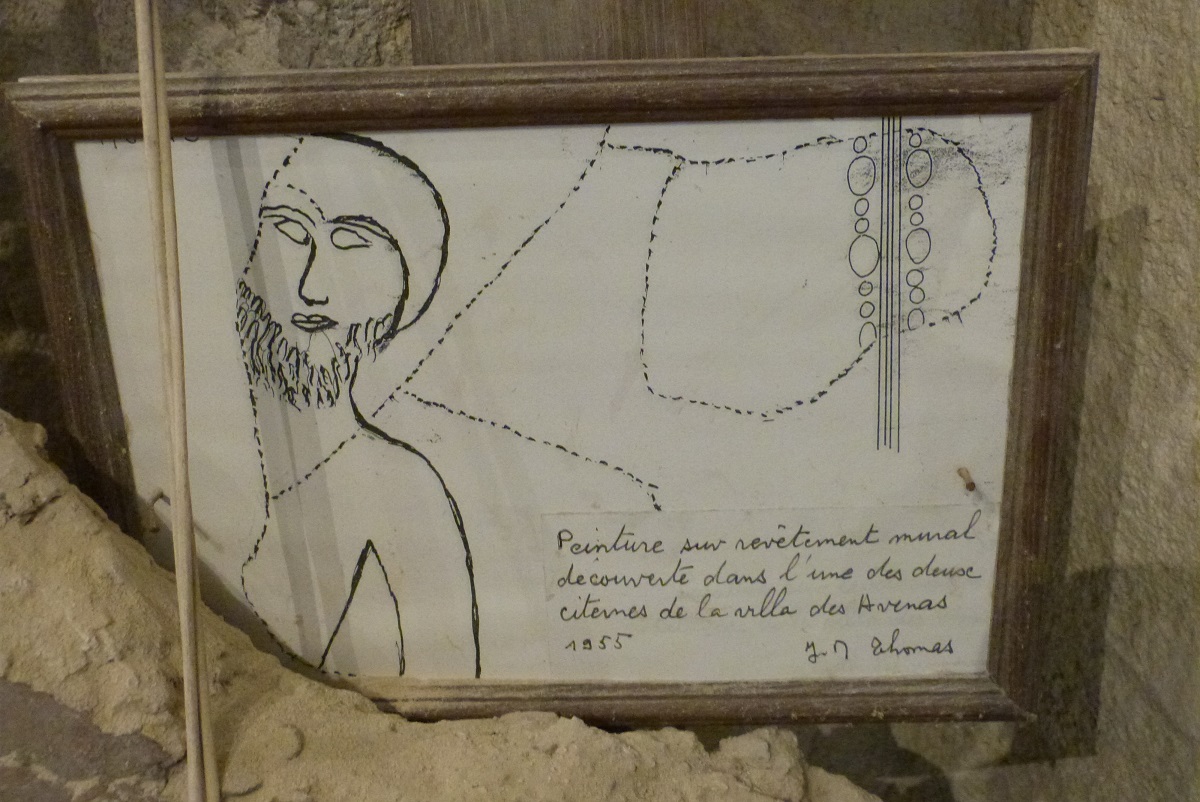 Peinture sur revêtement mural
découverte dans l'une des deux
citernes de la villa des Avenas
1955
J. M Thomas